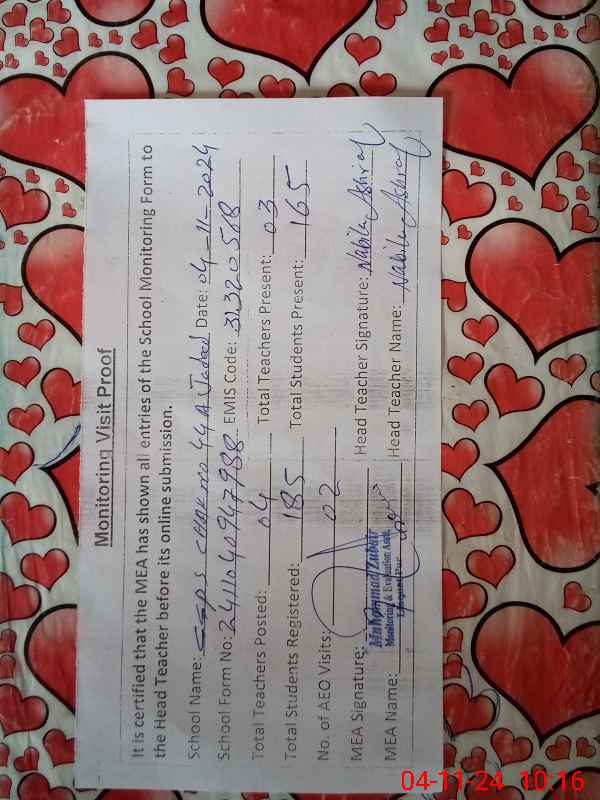 Monitoring Visit Proof
It is certified that the MEA has shown all entries of the School Monitoring Form to
the Head Teacher before its online submission.
School Name: GGPS CHAK NO 44A Jadeed Date: 04-11-2024
School Form No: 2411040947988 EMIS Code: 31320518
Total Teachers Posted: 04 Total Teachers Present: 03
Total Students Registered: 185 Total Students Present: 165
No. of AEO Visits: 02
MEA Signature: Head Teacher Signature: Nabila Ashraf
Muhammad Zubair
Monitoring & Evaluation Asstt.
MEA Name: Head Teacher Name: Nabila Ashraf
04-11-24 10:16